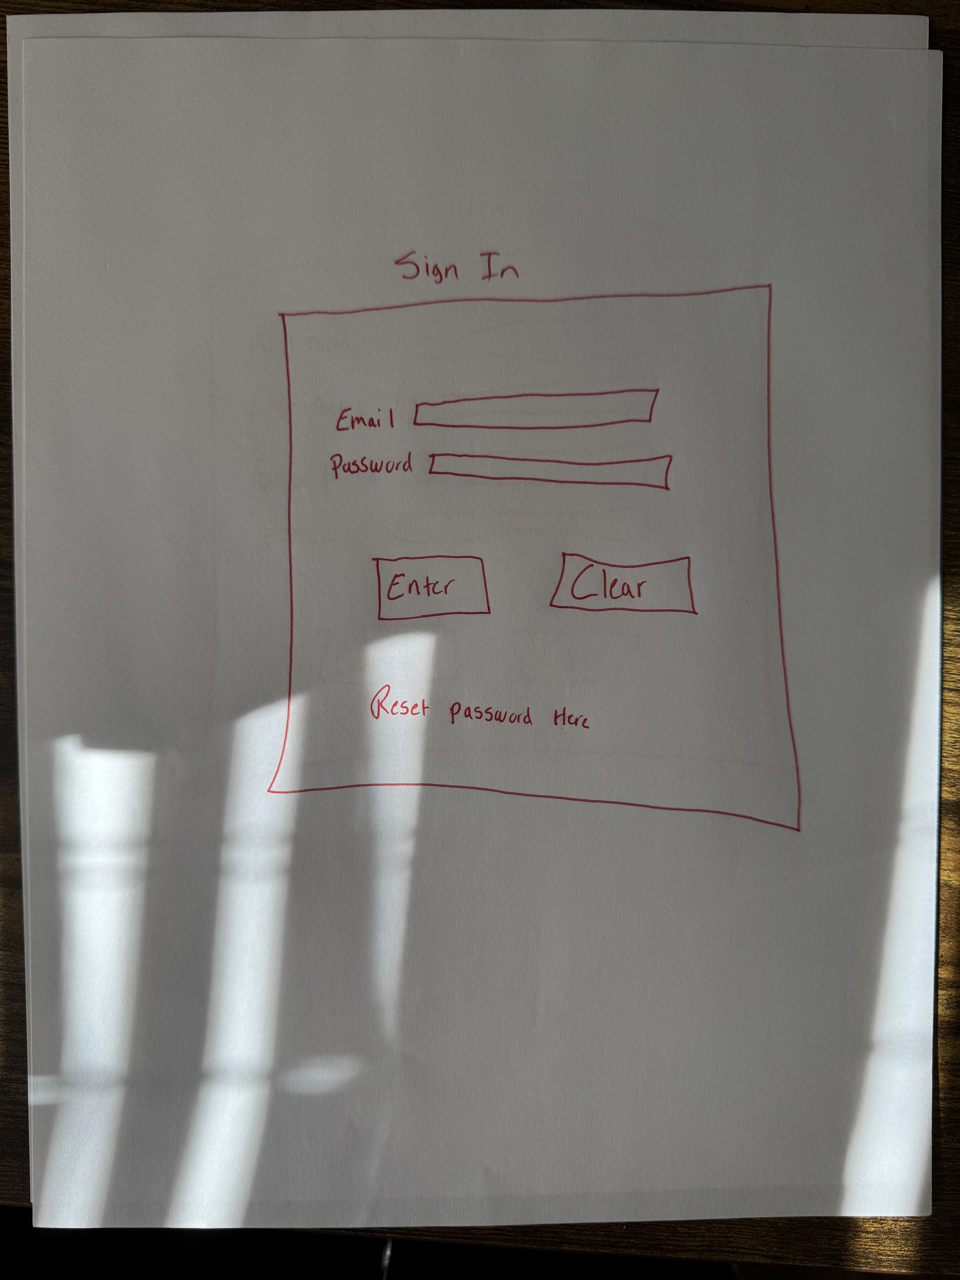 Sign In
Email
Password
Enter
Clear
Reset password Here